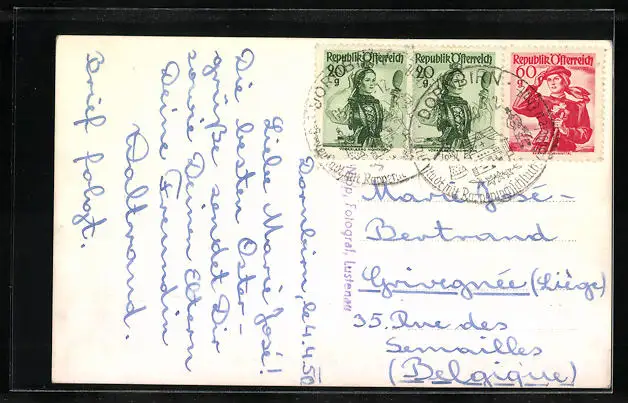 Dornbirn, le 4.4.50
Liebe Marie José!
Die besten Oster-
grüße sendet Dir
sowie Deinen Eltern
Deine Freundin
Waltraud.
Brief folgt.
Republik Österreich
20 g
Republik Österreich
20 g
Republik Österreich
60 g
DORNBIRN
Fotograf, Lustenau
Marie José-
Bertrand
Grivegnée (Liège)
35. Rue des
Semailles
(Belgique)